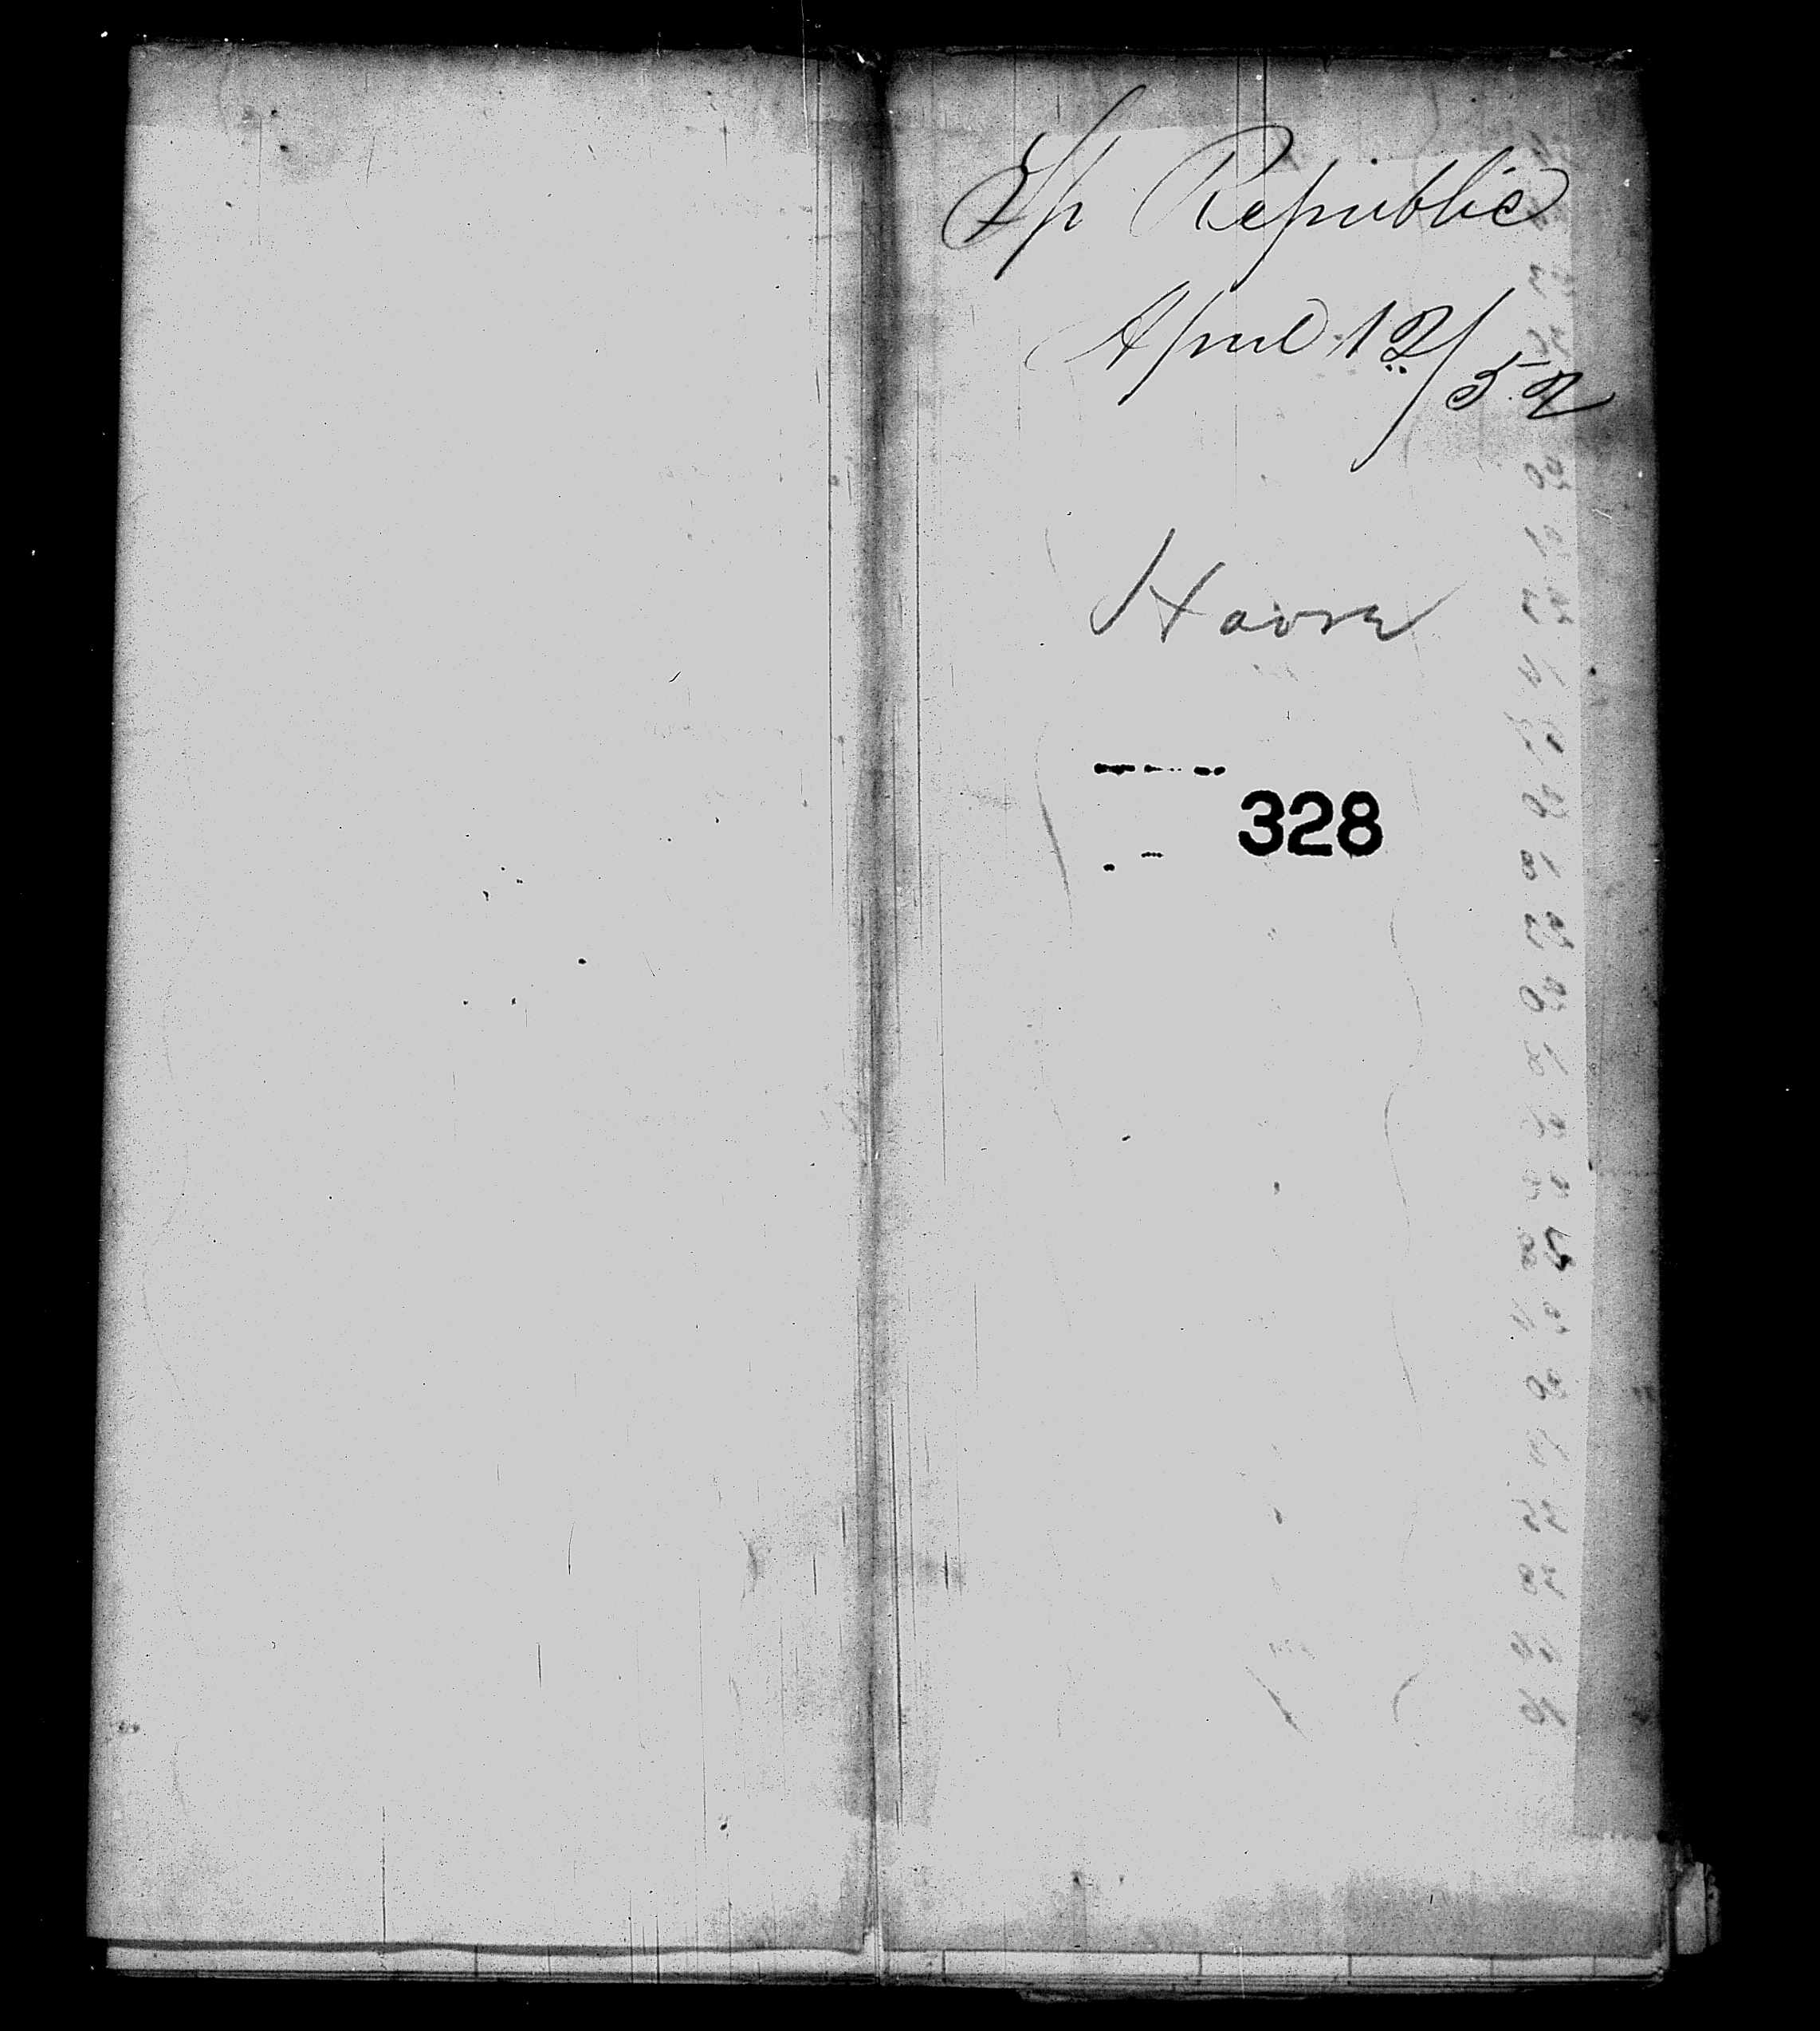 Sp Republic
April 12/52
Havre
328